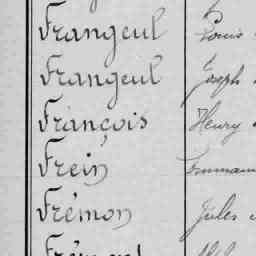 Frangeul Louis
Frangeul Joseph
François Henry
Frein
Frémon Jules